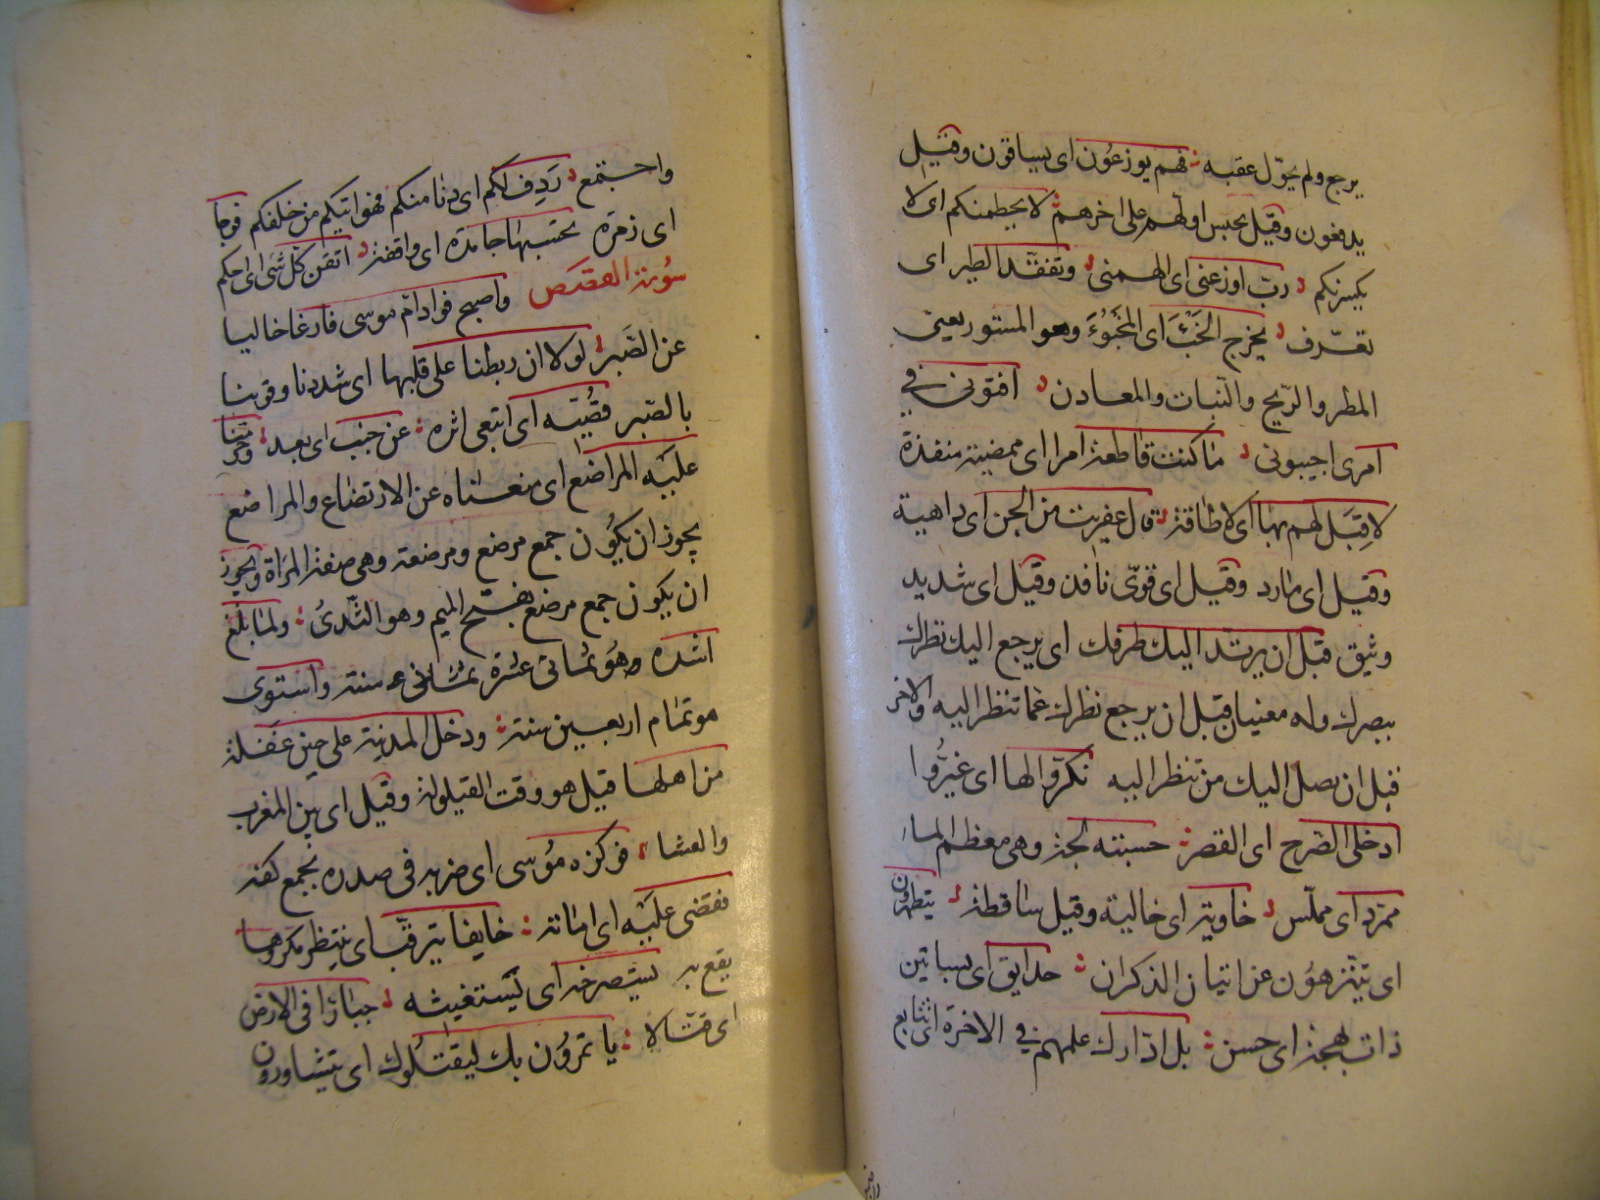 يرجع ولم يحوّل عقبه فهم يوزعون اى يساقون وقيل
يدفعون وقيل يحبس اولهم على اخرهم لا يحطمنكم اى لا
يكسرنكم ربّ اوزعنى اى الهمنى وتفقّد الطير اى
تعرّف يخرج الخبْءَ اى المخبُوْءَ وهو المستور يعنى
المطر والرّيح والنّبات والمعادن افتونى فى
امرى اجيبونى ما كنت قاطعة امرا اى ممضية منفذة
لا قِبَل لهم بها اى لا طاقة قال عفريت من الجن اى داهية
وقيل اى مارد وقيل اى قوىّ نافذ وقيل اى شديد
وثيق قبل ان يرتدّ اليك طرفك اى يرجع اليك نظرك
ببصرك وله معنيان قبل ان يرجع نظرك عما تنظر اليه والاخر
قبل ان يصل اليك من تنظر اليه نكّروا لها اى غيّرُوا
ادخلى الصّرح اى القصر حسبته لجة وهى معظم الماء
ممرّد اى مملّس خاوية اى خالية وقيل ساقطة يتطهرون
اى يتنزهون عن اتيان الذكران حدايق اى بساتين
ذات بهجة اى حسن بل ادّارك علمهم فى الاخرة اى تتابع
واجتمع
واجتمع رَدِف لكم اى دنا منكم فهو اتيكم من خلفكم فوجا
اى زمرة تحسبها جامدة اى واقفة اتقن كل شئ اى احكم
سُورة القصَص واصبح فواد امّ موسى فارغا خاليا
عن الصّبر لولا ان ربطنا على قلبها اى شددنا وقوينا
بالصّبر قصّيه اى اتبعى اثره عن جنب اى بعد وحرّمنا
عليه المراضع اى منعناه عن الارتضاع والمراضع
يجوز ان يكون جمع مرضع ومرضعة وهى صفة المرأة ويجوز
ان يكون جمع مرضع بفتح الميم وهو الثّدىُ ولما بلغ
اشده وهو ثمانى عشرة سنة واستوى
هو تمام اربعين سنة ودخل المدينة على حين غفلة
من اهلها قيل هو وقت القيلولة وقيل اى بين المغرب
والعشاء فوكزه مُوسى اى ضربه فى صدره بجمع كفه
فقضى عليه اى اماته خايفا يترقّب اى ينتظر مكروها
يقع به يستصرخه اى يستغيثه جبارا فى الارض
اى قتّالا ياتمرون بك ليقتلوك اى يتشاورون